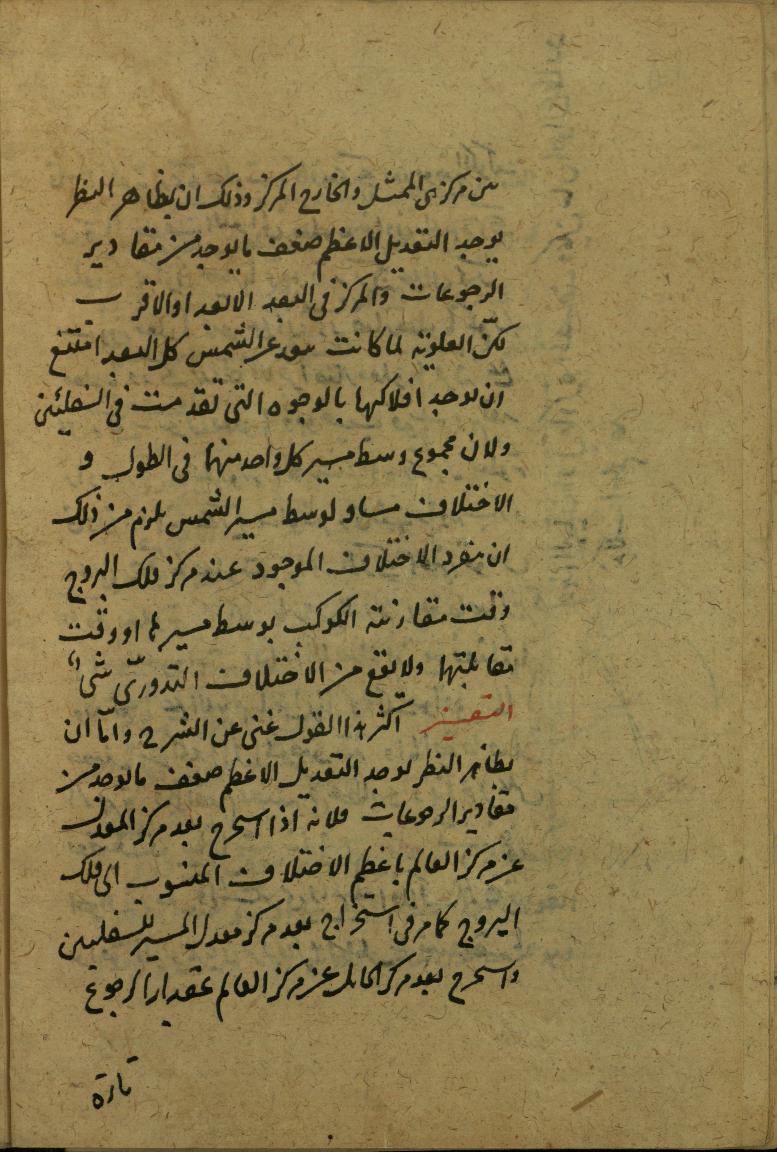 بين مركزي الممثل والخارج المركز وذلك ان بظاهر النظر
يوجد التعديل الاعظم ضعف ما يوجد من مقادير
الرجوعات والمركز في البعد الابعد او الاقرب
لكن العلوية لما كانت تبعد عن الشمس كل البعد امتنع
ان يوجد افلاكها بالوجوه التي تقدمت في السفليين
ولان مجموع وسط مسير كل واحد منها في الطول و
الاختلاف مساو لوسط مسير الشمس يلزم من ذلك
ان ينفرد الاختلاف الموجود عند مركز فلك البروج
وقت مقارنة الكوكب بوسط مسيرها او وقت
مقابلتها ولا يقع من الاختلاف التدويري شيء
التفسير اكثر هذا القول غني عن الشرح واما ان
بظاهر النظر يوجد التعديل الاعظم ضعف ما يوجد من
مقادير الرجوعات فلانه اذا استخرج بعد مركز المعدل
عن مركز العالم باعظم الاختلاف المنسوب الى فلك
البروج كما مر في استخراج بعد مركز معدل المسير للسفليين
واستخرج بعد مركز الحامل عن مركز العالم بمقدار الرجوع
تارة